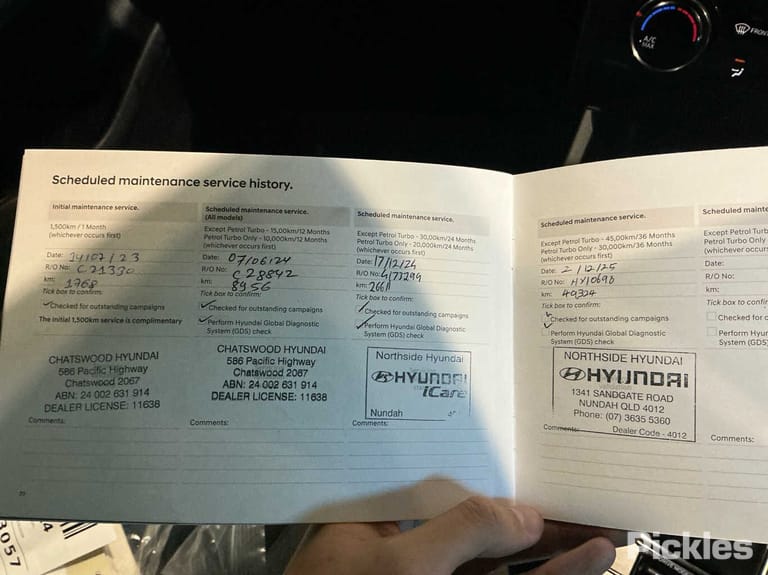 A/C
MAX
FRONT
Scheduled maintenance service history.
Initial maintenance service.
1,500km / 1 Month
(whichever occurs first)
Date: 14/07/23
R/O No: C21330
km: 1768
Tick box to confirm:
Checked for outstanding campaigns
The initial 1,500km service is complimentary
CHATSWOOD HYUNDAI
586 Pacific Highway
Chatswood 2067
ABN: 24 002 631 914
DEALER LICENSE: 11638
Comments:
Scheduled maintenance service.
(All models)
Except Petrol Turbo - 15,00km/12 Months
Petrol Turbo Only - 10,000km/12 Months
(whichever occurs first)
Date: 07/06/24
R/O No: C28842
km: 8956
Tick box to confirm:
Checked for outstanding campaigns
Perform Hyundai Global Diagnostic
System (GDS) check
CHATSWOOD HYUNDAI
586 Pacific Highway
Chatswood 2067
ABN: 24 002 631 914
DEALER LICENSE: 11638
Comments:
Scheduled maintenance service.
Except Petrol Turbo - 30,00km/24 Months
Petrol Turbo Only - 20,000km/24 Months
(whichever occurs first)
Date: 17/12/24
R/O No:
km:
Tick box to confirm:
Checked for outstanding campaigns
Perform Hyundai Global Diagnostic
System (GDS) check
Northside Hyundai
HYUNDAI
iCare
Nundah
Comments:
Scheduled maintenance service.
Except Petrol Turbo - 45,00km/36 Months
Petrol Turbo Only - 30,000km/36 Months
(whichever occurs first)
Date: 2/12/25
R/O No: HY10698
km: 40,324
Tick box to confirm:
Checked for outstanding campaigns
Perform Hyundai Global Diagnostic
System (GDS) check
NORTHSIDE HYUNDAI
HYUNDAI
1341 SANDGATE ROAD
NUNDAH QLD 4012
Phone: (07) 3635 5360
Dealer Code - 4012
Comments:
Scheduled mainten
Except Petrol Tu
Petrol Turbo On
(whichever occu
Date:
R/O No:
km:
Tick box to confir
Checked for c
Perform Hyur
System (GDS)
Comments:
3057
4
Pickles